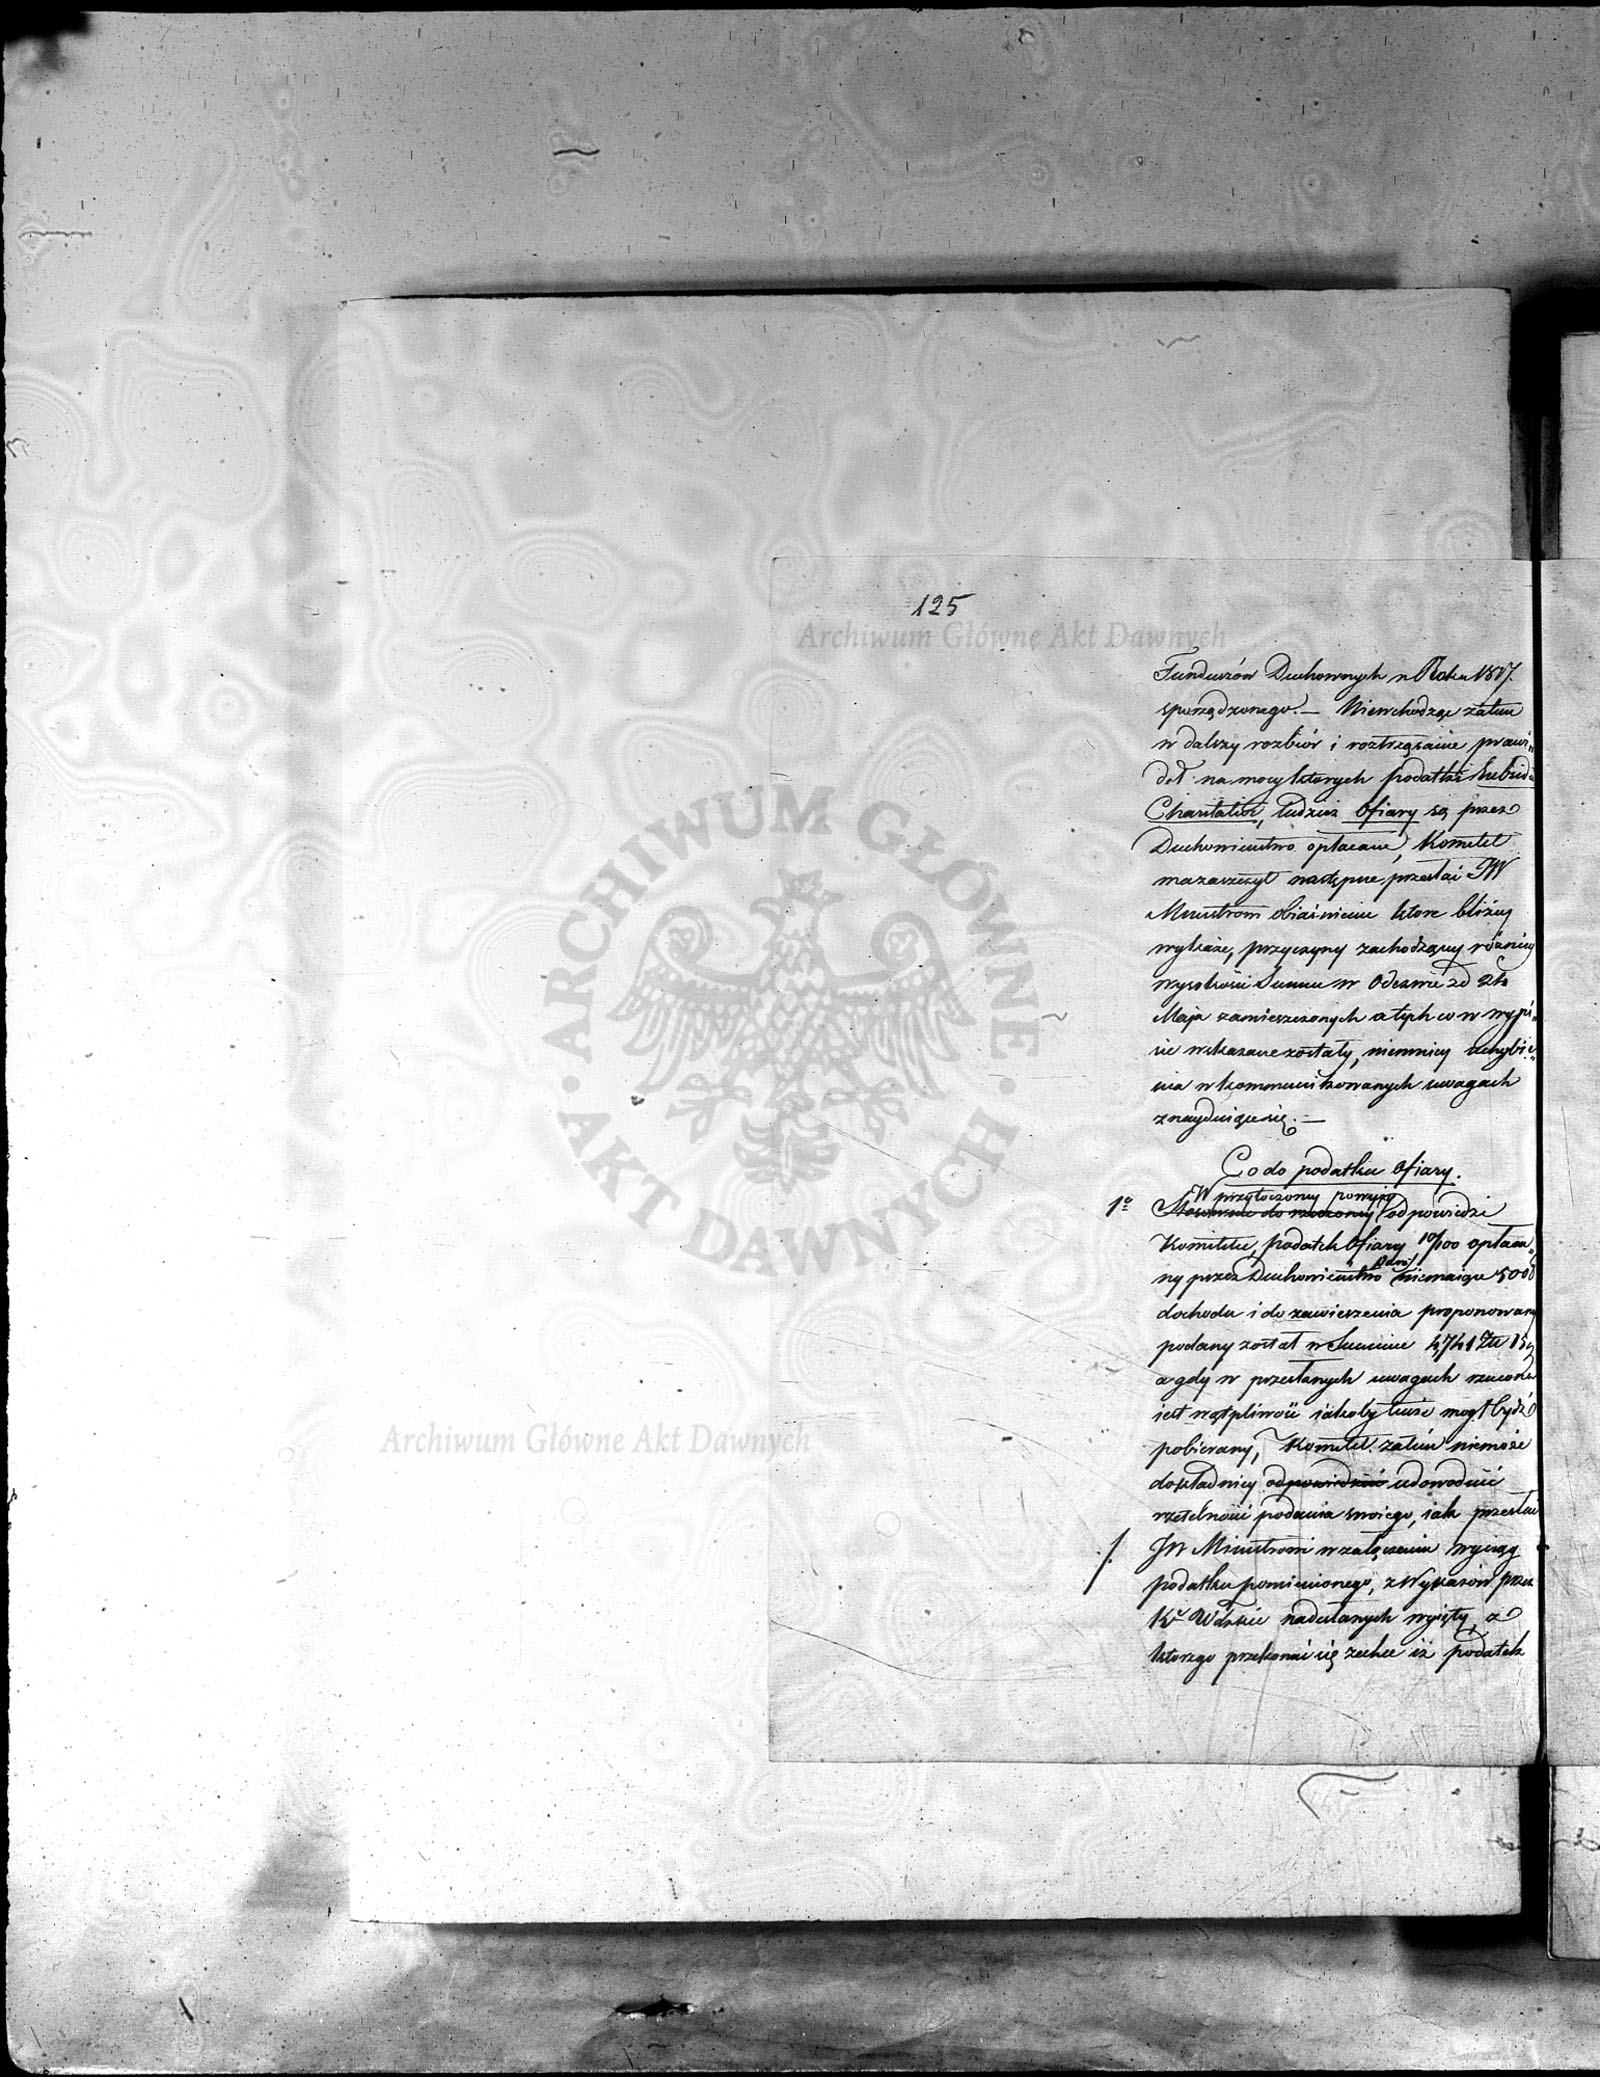 125
Archiwum Główne Akt Dawnych
Funduszów Duchownych w Roku 1817.
sporządzonego. — Niewchodząc zatem
w dalszy rozbiór i roztrząsanie prawi„
deł na mocy ktorych podatki Subsidii
Charitativi, tudzież Ofiary są przez
Duchowieństwo opłacane, Komitet
ma zaszczyt następne przesłać JW
Ministrowi obiaśnienie ktore bliżey
wykaże, przyczyny zachodzącey różnicy
wysokości Summ w Odezwie zd 26
Maja zamieszczonych a tych co w wypi„
sie wskazane zostały, niemniey uchybie„
nia w kommunikowanych uwagach
znayduiące się. —
Co do podatku Ofiary.
W przytoczoney powyżey
1o Stosownie do rzeczoney odpowiedzi
Komitetu, podatek Ofiary 10/100 opłaca„
ny przez Duchowieństwo niemaiące 5000
dochodu i do zawieszenia proponowany
podany został w Summie 4,741 Zł 15
a gdy w przesłanych uwagach rzucona
iest wątpliwość iakoby tenże mógł bydź
pobierany, Komitet zatém niemoże
dokładniey odpowiedzieć udowodnić
rzetelności podania swoiego, iak przesłać
JW Ministrowi w załączeniu wyciąg
podatku pomienionego, z Wykazów przez
Ke Wdzkie nadesłanych wyięty, z
ktorego przekonać się zechce iż podatek
Archiwum Główne Akt Dawnych
ARCHIWUM GŁÓWNE • AKT DAWNYCH •